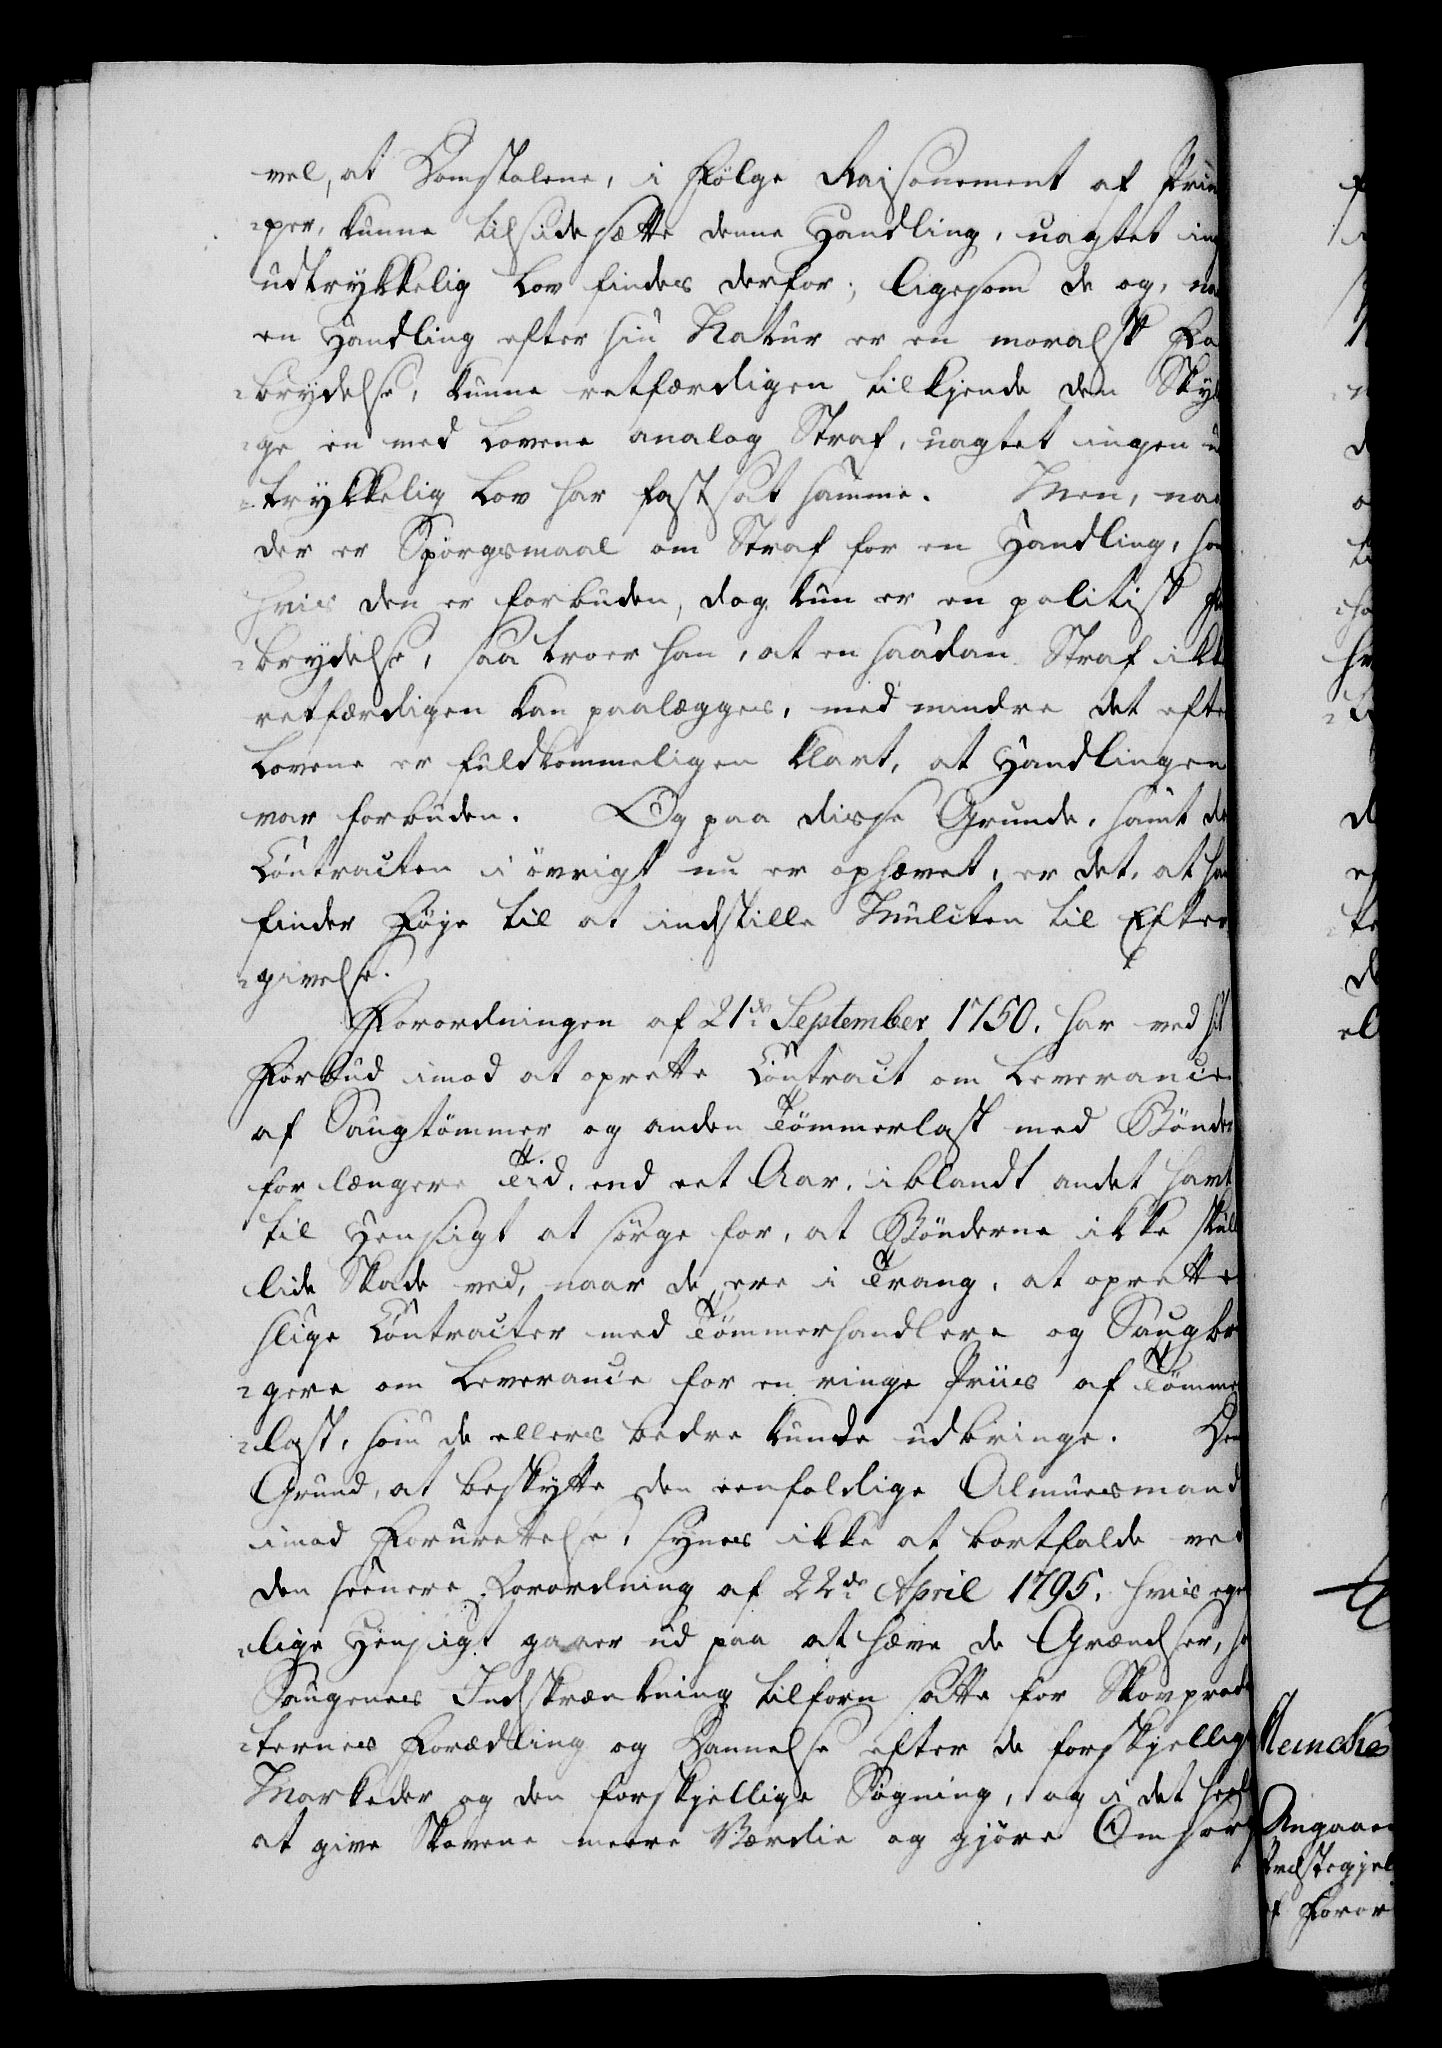 vel, at Domstolene, i Følge Raisonement af Prin
-per, kunne tilsidesætte denne Handling, uagtet ing
udtrykkelig Lov findes derfor; ligesom de og, na
en Handling efter sin Natur er en moralsk For
-brydelse, kunne retfærdigen tilkjende den Skyl
-ge en med Lovene analog Straf, uagtet ingen u
-trykkelig Lov har fastsat samme. Men, naa
der er Spørgsmaal om Straf for en Handling, so
hvis den er forbuden, dog kun er en politisk
-brydelse, saa troer han, at en saadan Straf ikk
retfærdigen kan paalægges, med mindre det efte
Lovene er fuldkommeligen klart, at Handlingen
var forbuden. Og paa disse Grunde, samt da
Contracten i øvrigt nu er ophævet, er det, at han
finder Føje til at indstille Mulcten til Efter
-givelse.
Forordningen af 21de September 1750. har ved sit
Forbud imod at oprette Contract om Leverance
af Saugtømmer og anden Tømmerlast med Bønder
for længere Tid, end eet Aar, iblandt andet havt
til Hensigt at sørge for, at Bønderne ikke skull
lide Skade ved, naar de ere i Trang, at oprette
slige Contracter med Tømmerhandlere og Saugbr
-gere om Leverance for en ringe Priis af Tømme
-last, som de ellers bedre kunde udbringe. Den
Grund, at beskytte den eenfoldige Almuesmand
imod Forurettelse, synes ikke at bortfalde ved
den seenere Forordning af 22de April 1795. hvis egen
-lige Hensigt gaaer ud paa at hæve de Grændser, so
Saugenes Indskrænkning tilforn satte for Skovprodu
-ternes Forædling og Dannelse efter de forskjellige
Markeder og den forskjellige Søgning, og i det heel
at give Skovene meere Værdie og gjøre Omsor
Muncke
Angaaen
Foror